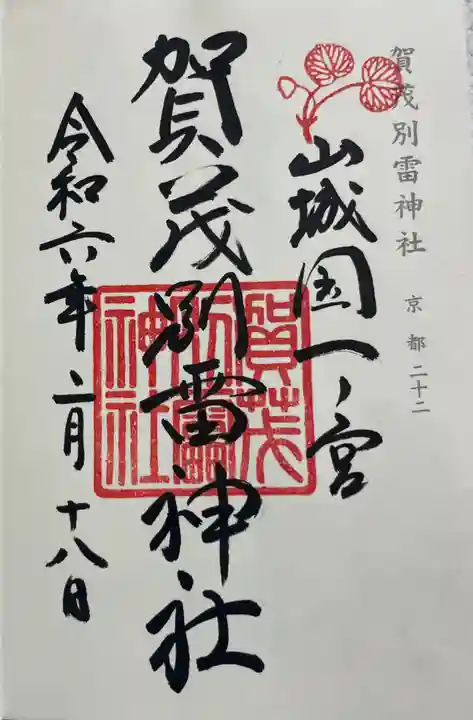 賀茂別雷神社 京都二十二
山城国一ノ宮
賀茂別雷神社
賀茂
別雷
神社
令和六年二月十八日